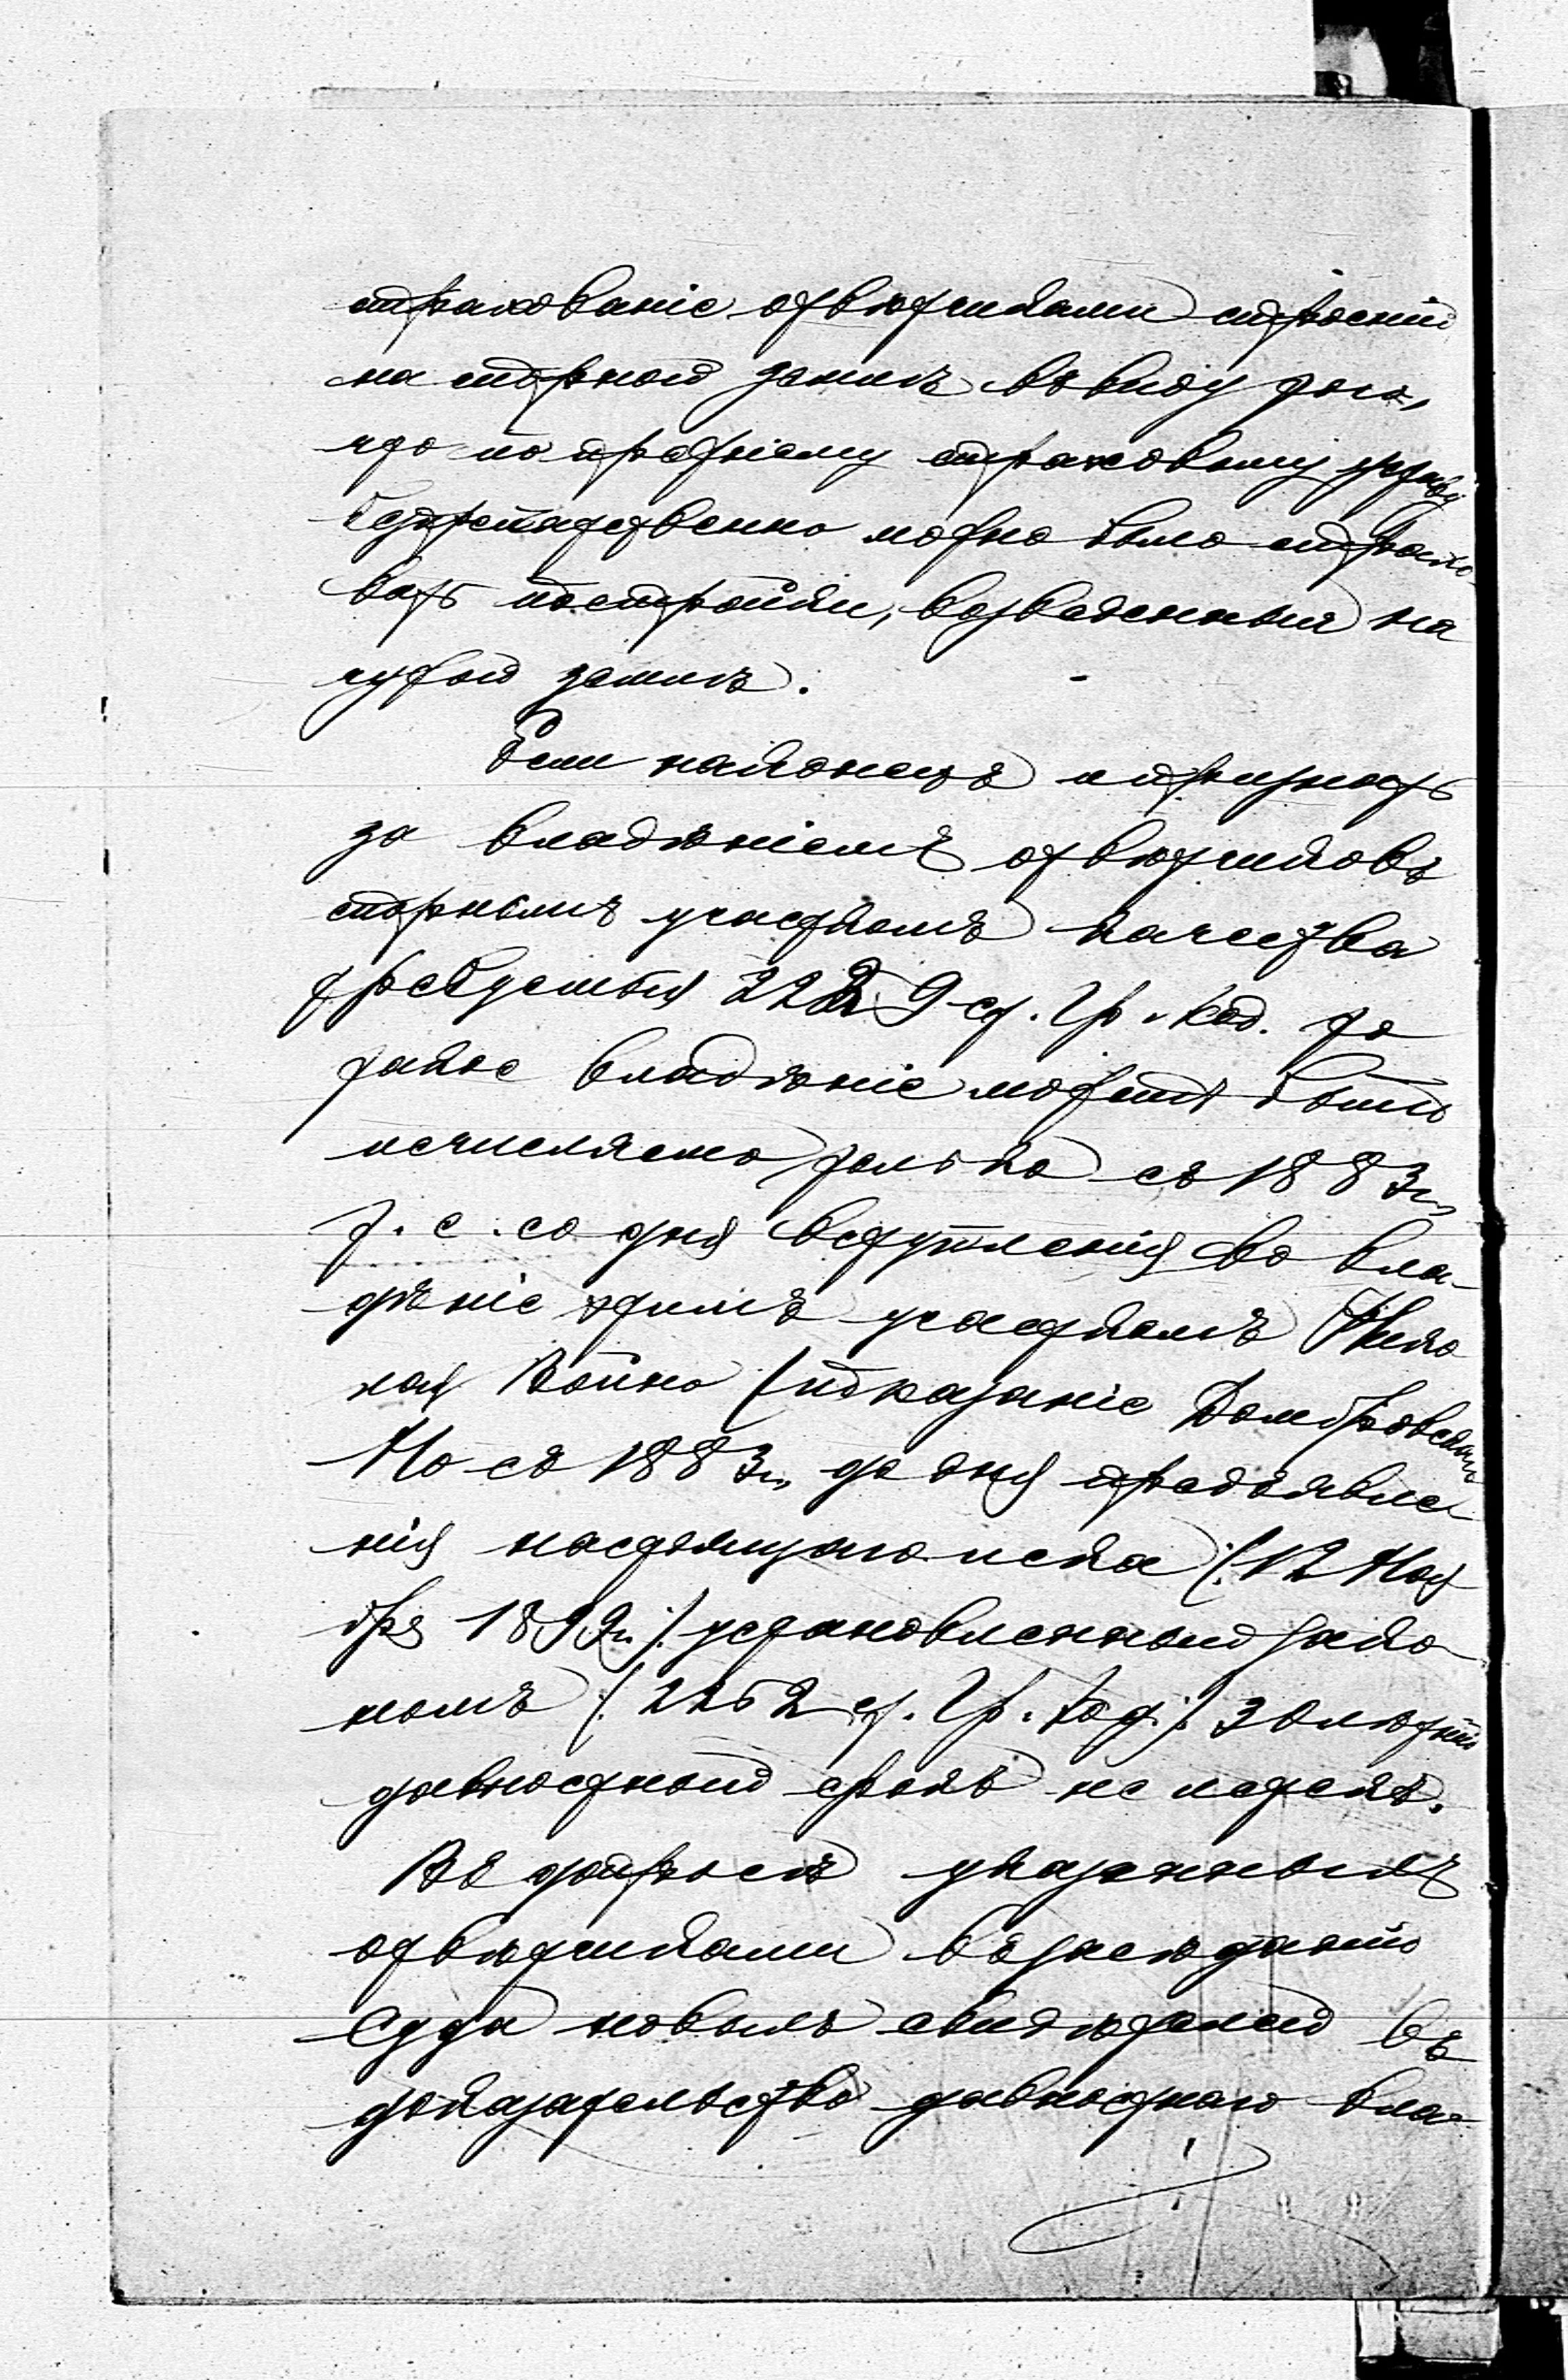 страхованіе отвѣтчиками строеній
на спорной землѣ въ виду того,
что по прежнему страховому уставу
безпрепятственно можно было страхо-
вать постройки, возведенныя на
чужой землѣ.
Если наконецъ и признать
за владѣніемъ отвѣтчиковъ
спорнымъ участкомъ качества
требуемыя 2229 ст. Гр. Код. то
такое владѣніе можетъ быть
исчисляемо только съ 1883 г.,
т. е. со дня вступленія во вла-
дѣніе этимъ участкомъ
Войно (показаніе Домбровскаго
Но съ 1883 г. до дня предъявле-
нія настоящаго иска (: 12 Ноя
бря 1899 г. :) установленный зако-
номъ (: 2262 ст. Гр. Код. :) 30 лѣтній
давностный срокъ не истекъ.
Въ допросѣ указанныхъ
отвѣтчиками въ засѣданіи
Суда новыхъ свидѣтелей въ
доказательство давностнаго вла-